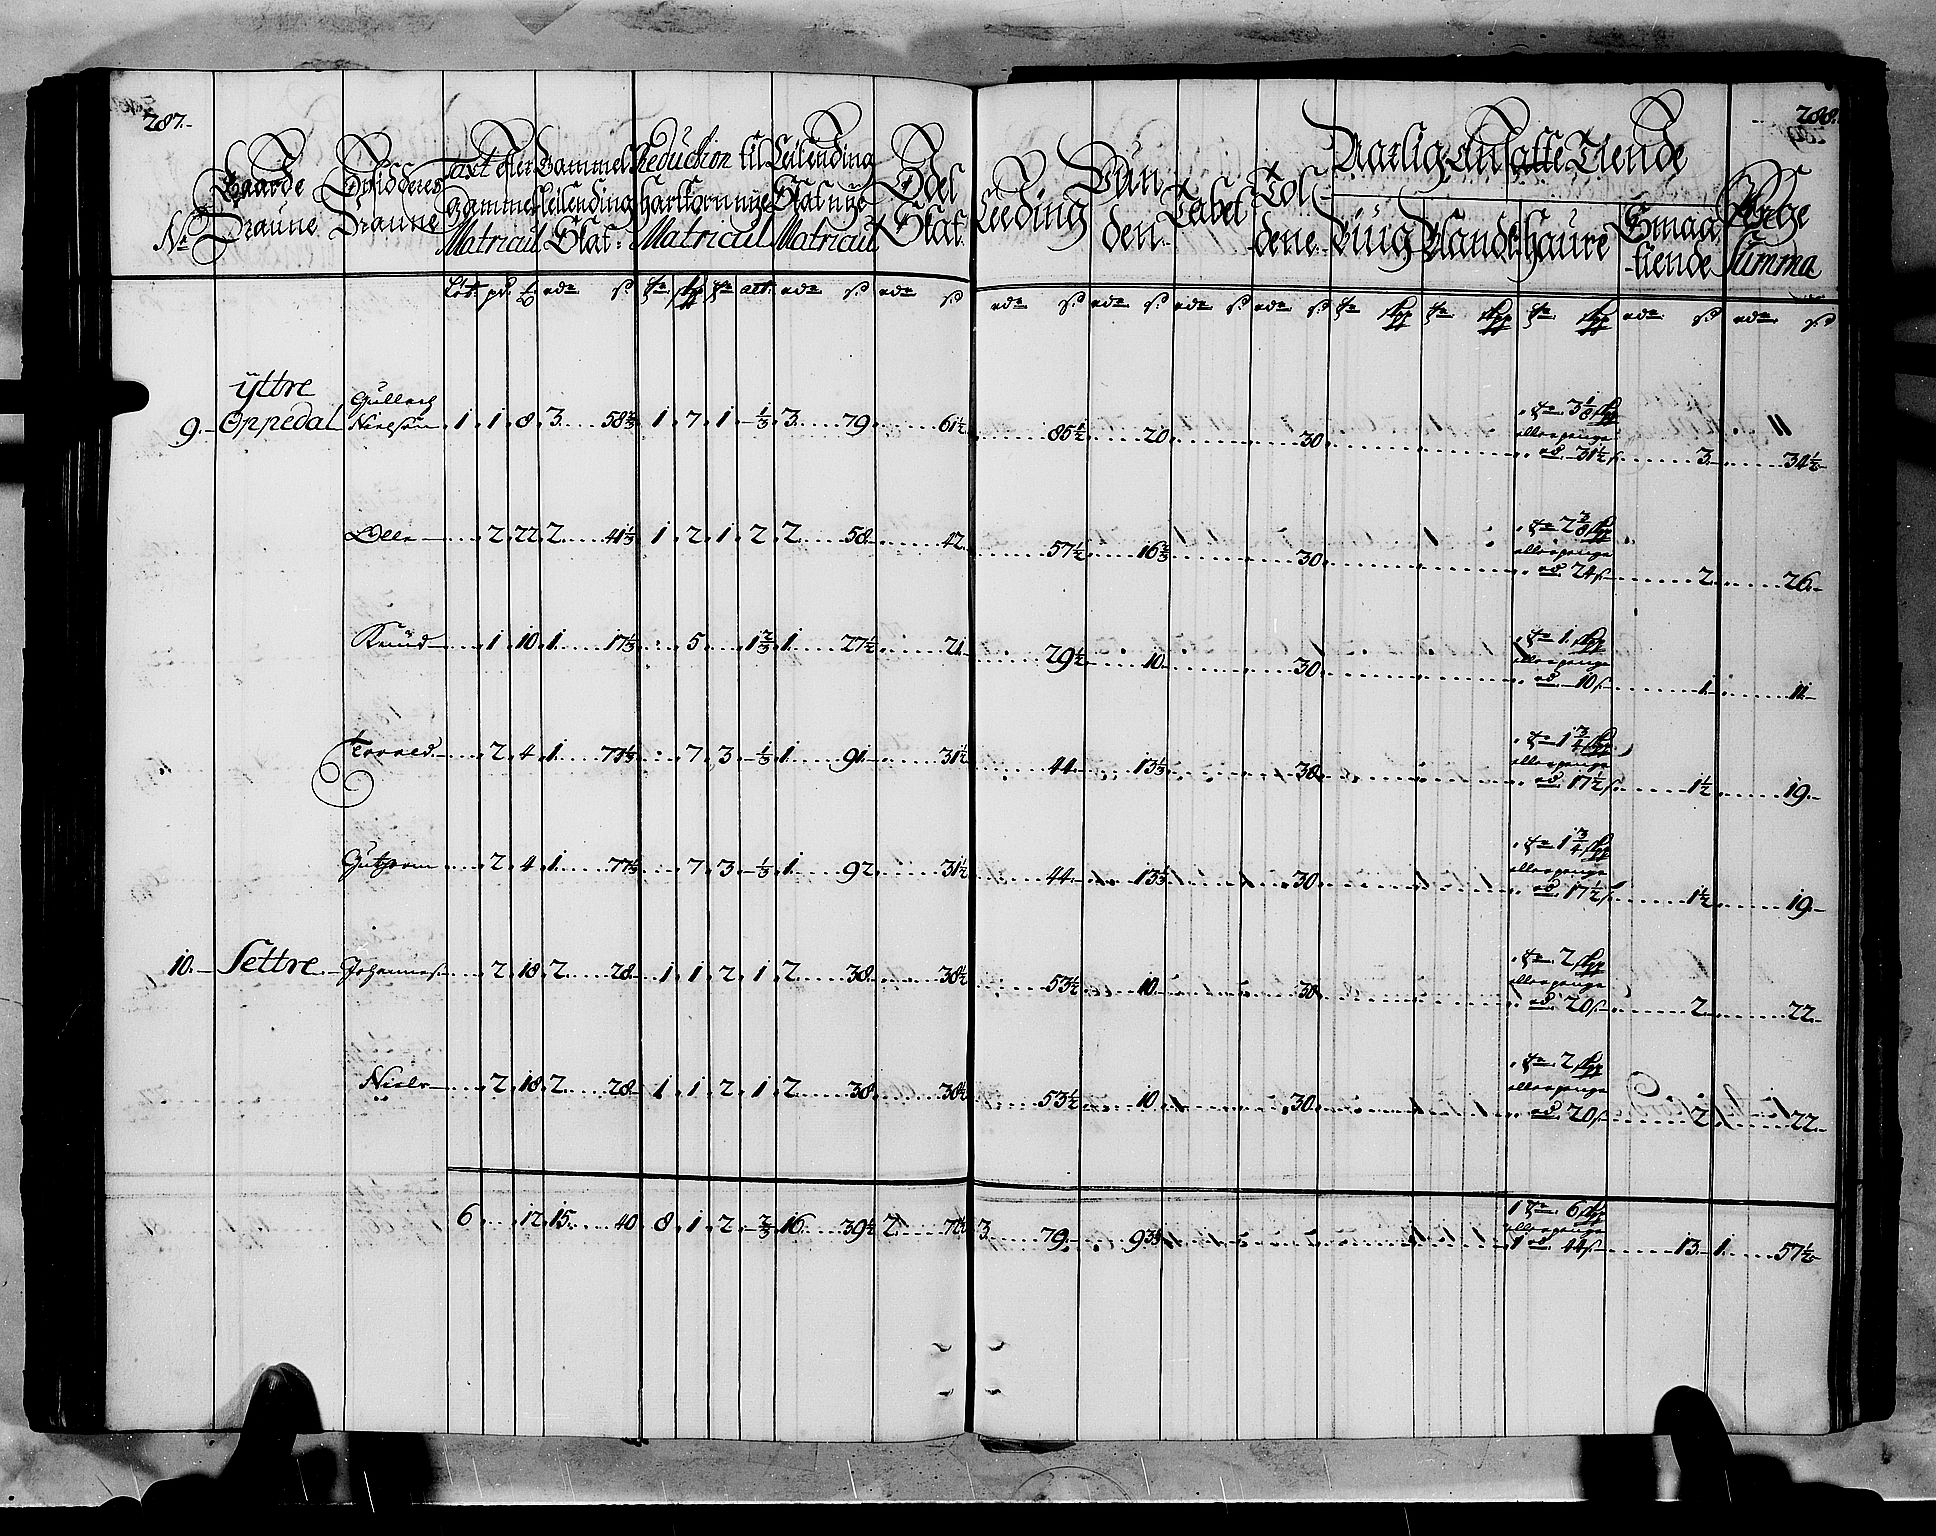 287.
288.
No
Gaarde
Naune
Opsidderes
Naune
Taxt efter
gammel
Matricul
Gammel
leilending
Skat
Reduction til
hartkorn nye
Matricul
Leilending
Skat nye
Matricul
Odel
Skat
Leeding
Vun
den
Leibet
Tol
dene
Aarlig Ansatte Tiende
Biug
Bland
haure
Smaa
tiende
Penge
Summa
yttre
9. Oppedal Gullach
Nielsøn 1 1 8 3 58 2/3 1 7 1 1/3 3 79 61 1/2 85 1/2 20 30 3 1/8 31 1/2 3 34 1/2
Olle 2 22 2 41 1/3 1 2 1 2 2 58 42 57 1/2 16 2/3 30 2 3/8 24 2 26
Knud 1 10 1 17 1/3 5 1 2/3 1 27 1/2 21 29 1/2 10 30 1 10 1 11
2 4 1 77 1/3 7 3 1/3 1 91 31 1/2 44 13 1/3 30 1 3/4 17 1/2 1 1/2 19
Gutorm 2 4 1 77 1/3 7 3 1/3 1 92 31 1/2 44 13 1/3 30 1 3/4 17 1/2 1 1/2 19
10. Settre Johannes 2 18 2 28 1 1 2 1 2 38 38 1/2 53 1/2 10 30 2 20 2 22
Niels 2 18 2 28 1 1 2 1 2 38 38 1/2 53 1/2 10 30 2 20 2 22
6 12 15 40 8 1 2 2/3 16 39 1/2 2 72 1/2 3 79 93 1/3 1 6 1 44 13 1 57 1/2